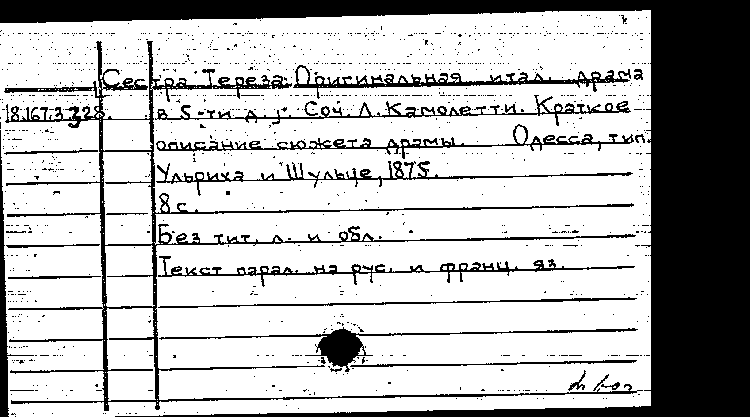 Сестра Тереза. Оригинальная итал. драма
18.167.3.228. в 5-ти д. Соч. Л. Камолетти. Краткое
описание сюжета драмы. Одесса, тип.
Ульриха и Шульце, 1875.
8 с.
Без тит. л. и обл.
Текст парал. на рус. и франц. яз.